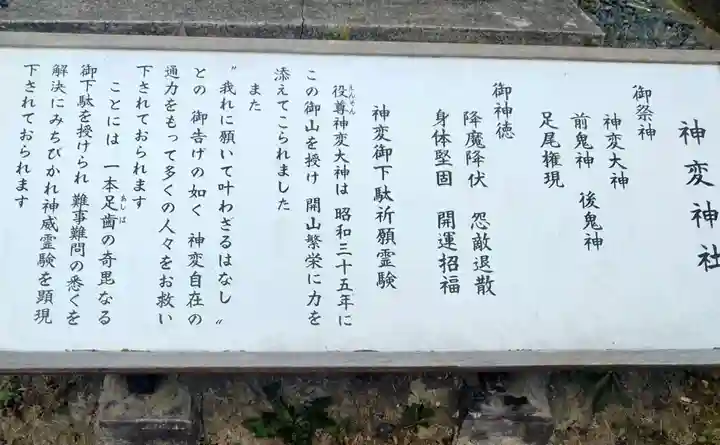 神変神社
御祭神
神変大神
前鬼神 後鬼神
足尾権現
御神徳
降魔降伏 怨敵退散
身体堅固 開運招福
神変御下駄祈願霊験
役尊神変大神は 昭和三十五年に
えんそん
この御山を授け 開山繁栄に力を
添えてこられました
また
〝我れに願いて叶わざるはなし〟
との 御告げの如く 神変自在の
通力をもって多くの人々をお救い
下されております
ことには 一本足歯の奇毘なる
あしば
御下駄を授けられ 難事難問の悉くを
解決にみちびかれ神威霊験を顕現
下されておられます